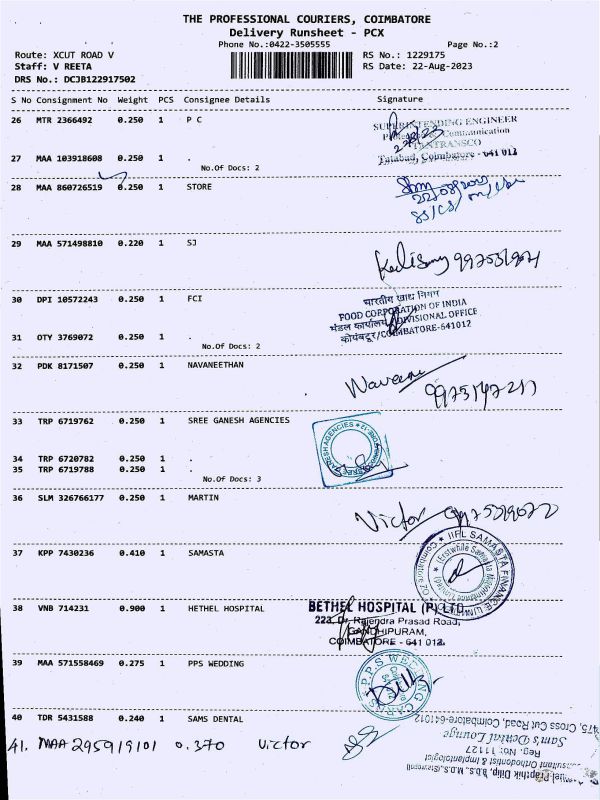 THE PROFESSIONAL COURIERS, COIMBATORE
Delivery Runsheet - PCX
Phone No.:0422-3505555 Page No.:2
Route: XCUT ROAD V RS No.: 1229175
Staff: V REETA RS Date: 22-Aug-2023
DRS No.: DCJB122917502
S No Consignment No Weight PCS Consignee Details Signature
26 MTR 2366492 0.250 1 P C
SUPERINTENDING ENGINEER
Communication
TANTRANSCO
Tatabad, Coimbatore - 641 012
27 MAA 103918608 0.250 1 .
No.Of Docs: 2
28 MAA 860726519 0.250 1 STORE
29 MAA 571498810 0.220 1 SJ
30 DPI 10572243 0.250 1 FCI
भारतीय खाद्य निगम
FOOD CORPORATION OF INDIA
मंडल कार्यालय/DIVISIONAL OFFICE
कोयंबटूर/COIMBATORE-641012
31 OTY 3769072 0.250 1 .
No.Of Docs: 2
32 PDK 8171507 0.250 1 NAVANEETHAN
33 TRP 6719762 0.250 1 SREE GANESH AGENCIES
GANESH AGENCIES
34 TRP 6720782 0.250 1 .
35 TRP 6719788 0.250 1 .
No.Of Docs: 3
36 SLM 326766177 0.250 1 MARTIN
Victor
37 KPP 7430236 0.410 1 SAMASTA
IIFL SAMASTA FINANCE LIMITED
38 VNB 714231 0.900 1 HETHEL HOSPITAL
BETHEL HOSPITAL (P) LTD.
223, Dr. Rajendra Prasad Road,
GANDHIPURAM,
COIMBATORE - 641 012.
39 MAA 571558469 0.275 1 PPS WEDDING
PPS WEDDING CARDS
40 TDR 5431588 0.240 1 SAMS DENTAL
41. MAA 295919101 0.370 Victor
Dilip, B.D.S., M.D.S.,
Orthodontist & Implantologist
Reg. No: 11127
Sam's Dental Lounge
475, Cross Cut Road, Coimbatore-641012